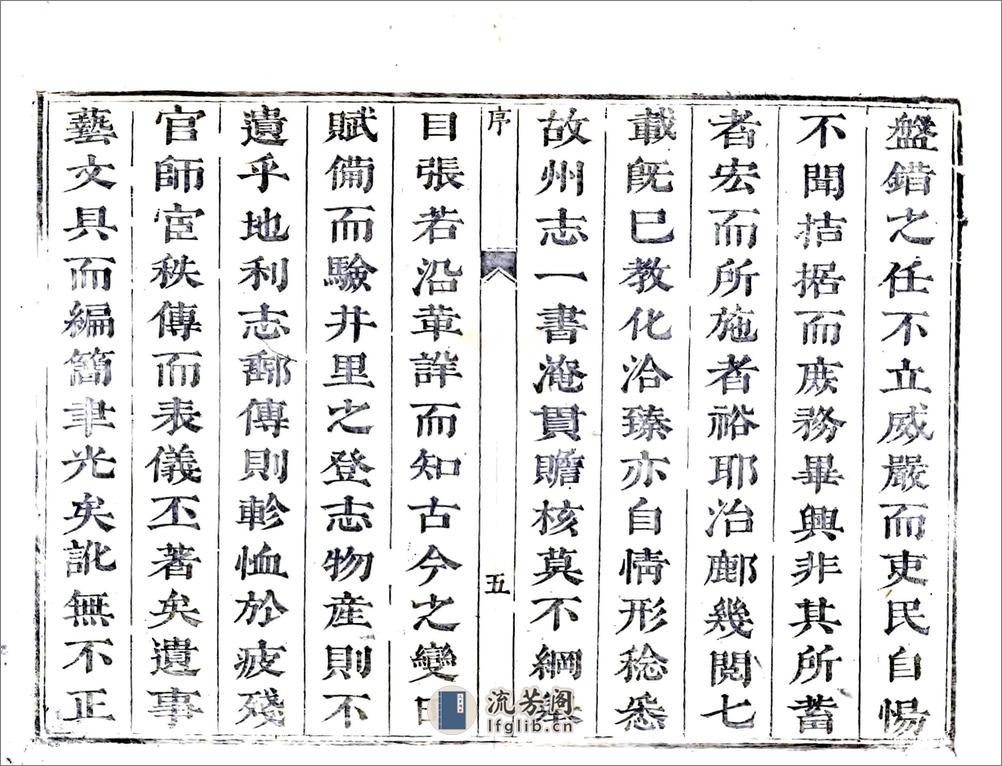 盤錯之任不立威嚴而吏民自惕
不聞拮据而庶務畢興非其所蓄
者宏而所施者裕耶治鄜幾閱七
載既巳教化洽臻亦自情形稔悉
故州志一書淹貫贍核莫不綱舉
序
五
目張若沿革詳而知古今之變田
賦備而驗井里之登志物産則不
遺乎地利志郵傳則軫恤於疲殘
官師宦秩傳而表儀丕著矣遺事
藝文具而編簡聿光矣訛無不正
流芳阁
lfglib.cn